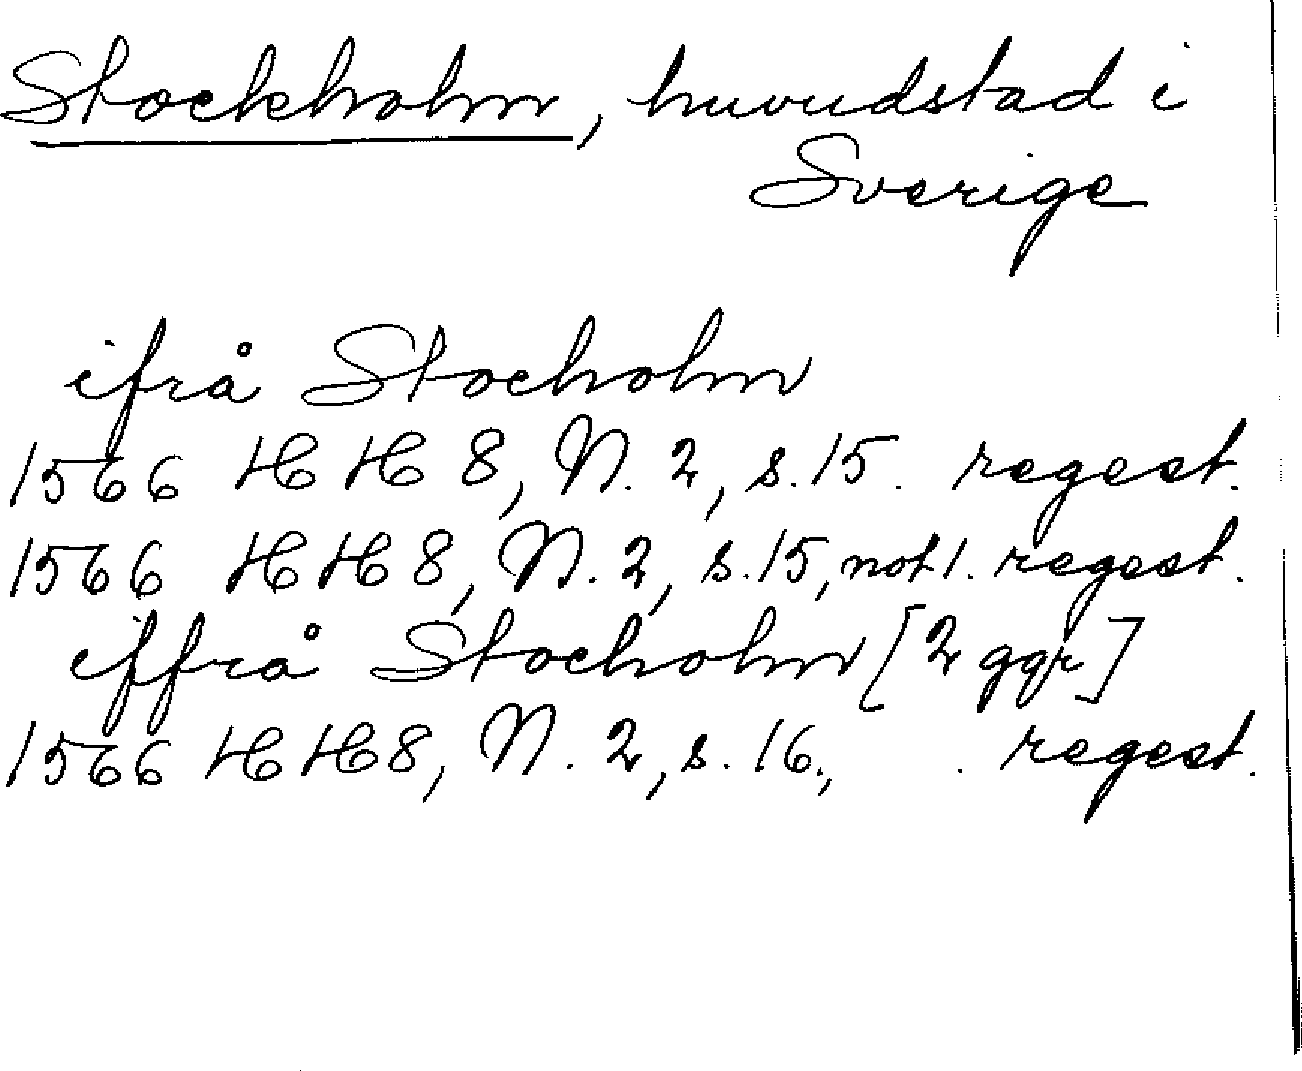 Stockholm, huvudstad i
Sverige
ifrå Stocholm
1566 HH 8, N. 2, s. 15. regest.
1566 HH 8, N. 2, s. 15, not 1. regest.
iffrå Stocholm [2 ggr]
1566 HH 8, N. 2, s. 16., . regest.